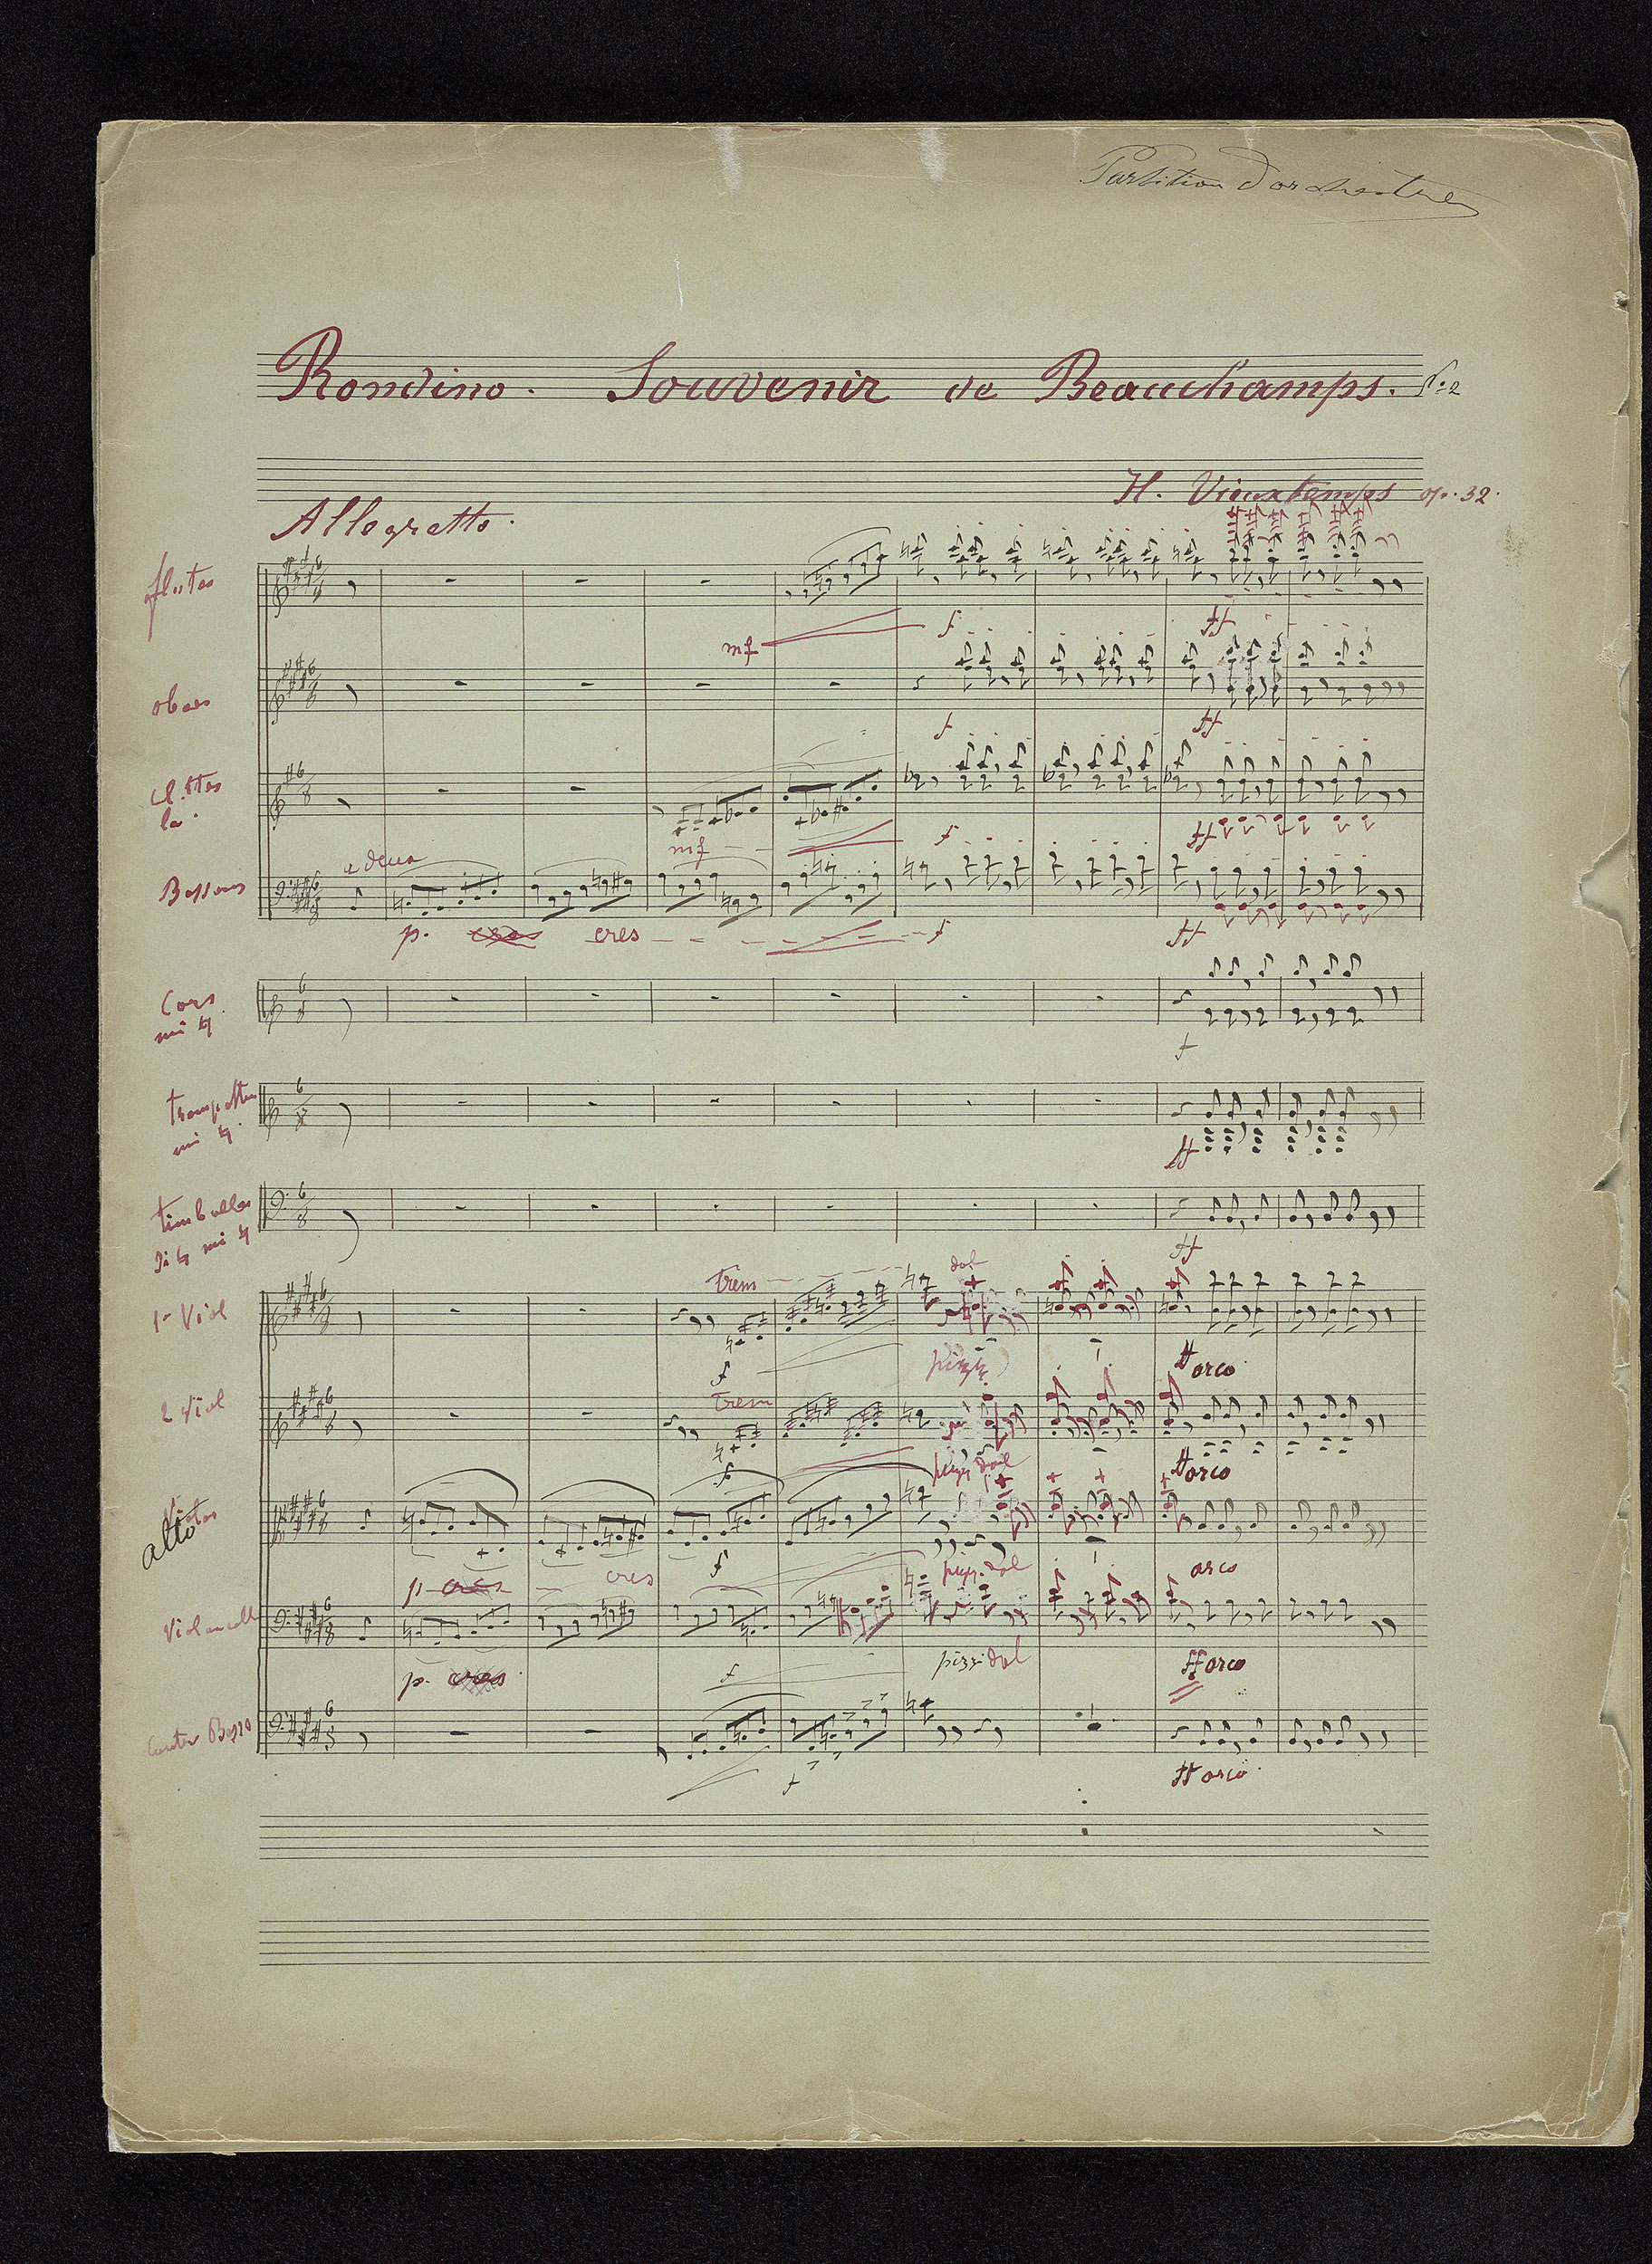 Partition d'orchestre
Rondino. Souvenir de Beauchamps. N° 2
H. Vieuxtemps op. 32.
Allegretto.
flutes
mf f ff
oboes
f ff
cl.ttes
la
mf f ff
a deux
Bassons
p. cres - - - f ff
Cors
mi ♮
f
trompettes
mi ♮.
ff
timballes
si ♮ mi ♮
ff
trem - - - - dol
1r Viol
f pizz arco.
trem
2 Viol
f pizz dol arco
alto
p cres cres f pizz. dol arco
Violoncelle
p. cres f pizz dol ff arco
Contre Basso
f ff arco.